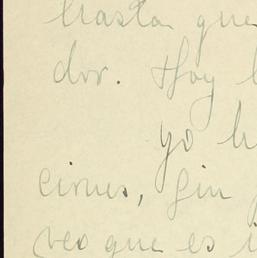 hasta que
dor. Hoy
yo h
ciones, sin
veo que es i